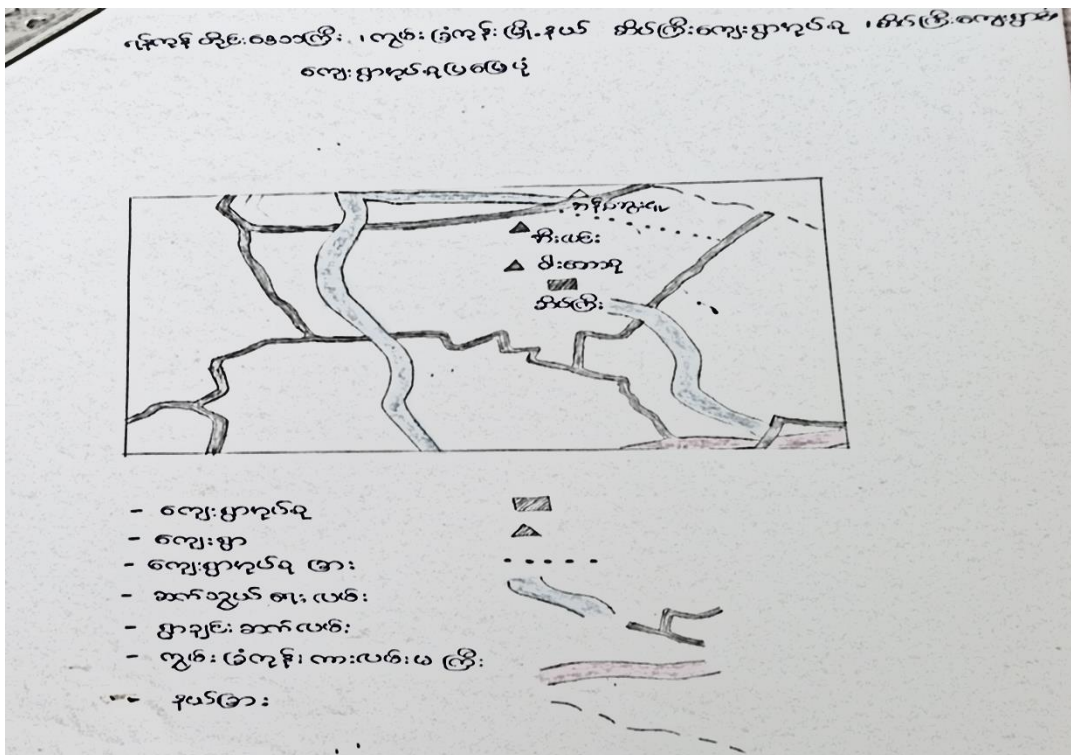 ရန်ကုန် တိုင်းဒေသကြီး ၊ ကွမ်းခြံကုန်းမြို့နယ် အိပ်ကြီးကျေးရွာအုပ်စု ၊ အိပ်ကြီးကျေးရွာ
ကျေးရွာအုပ်စုပြမြေပုံ
အိပ်ကြီး
- ကျေးရွာအုပ်စု
- ကျေးရွာ
- ကျေးရွာအုပ်စု ခြား
- ဆက်သွယ် ရေး လမ်း
- ရွာချင်း ဆက် လမ်း
- ကွမ်းခြံကုန်း ကားလမ်းမ ကြီး
- နယ်ခြား